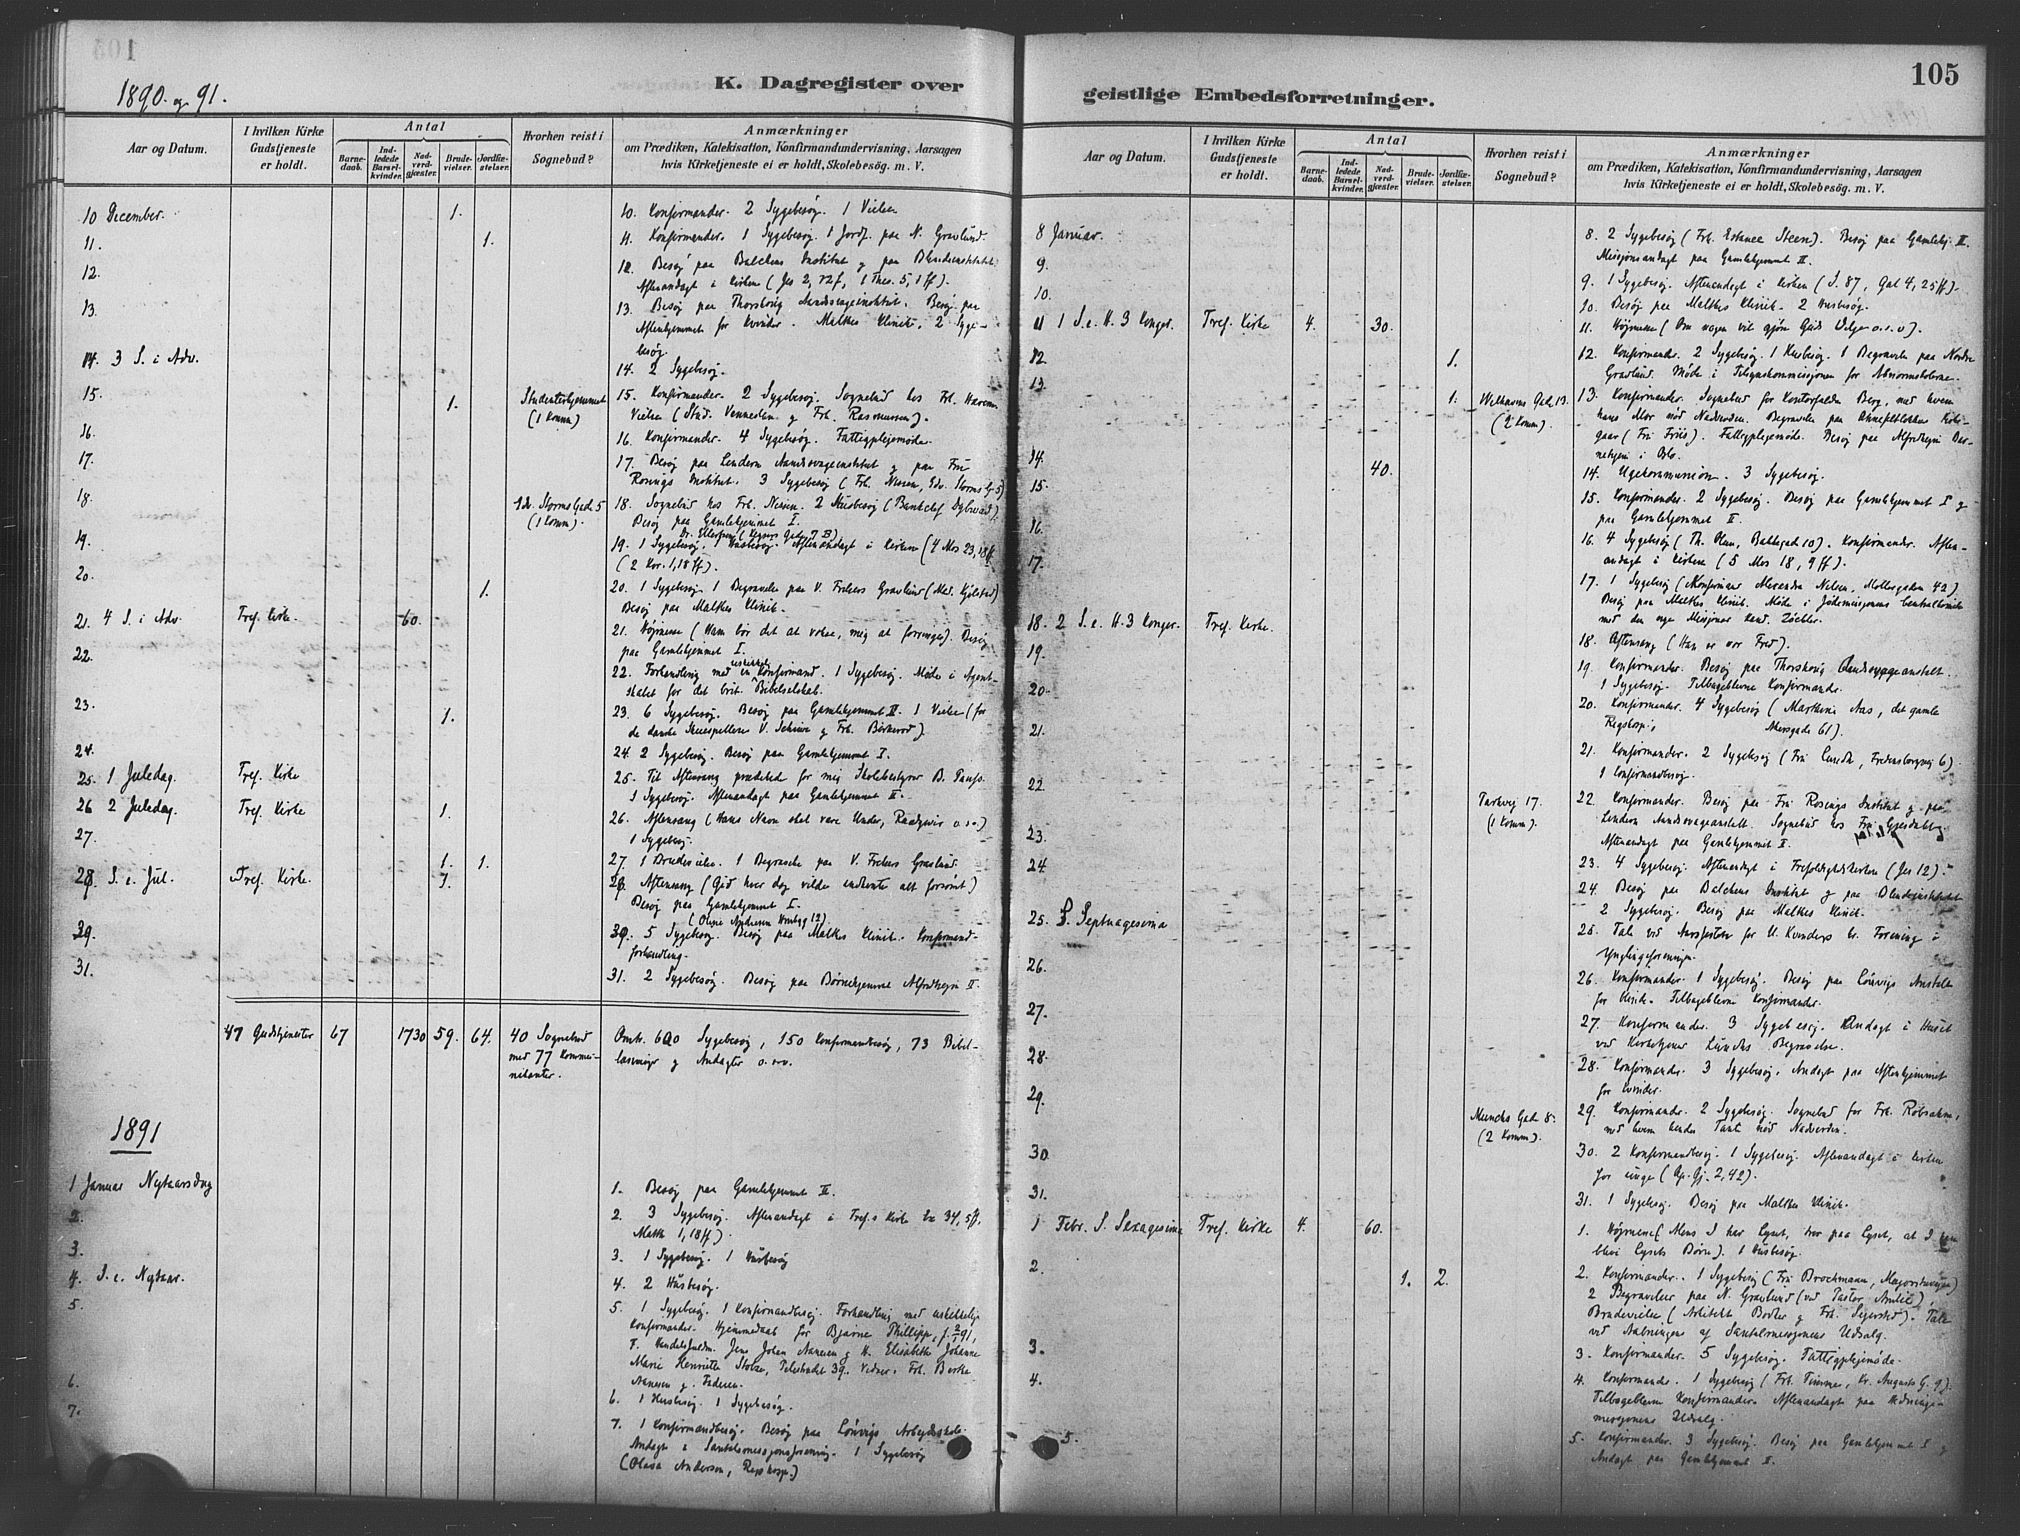 105
1890 og 91.
K. Dagregister over
geistlige Embedsforretninger.
Aar og Datum.
I hvilken Kirke
Gudstjeneste
er holdt.
Antal
Barne-
daab.
Ind-
ledede
Barsel-
kvinder.
Nad-
verd-
gjæster.
Brude-
vielser.
Jordfæ-
stelser.
Hvorhen reist i
Sognebud?
Anmærkninger
om Prædiken, Katekisation, Konfirmandundervisning, Aarsagen
hvis Kirketjeneste ei er holdt, Skolebesøg. m. V.
10 December. 1. 10. Konfirmander. 2 Sygebesøg. 1 Vielse
11. 1. 11. Konfirmander. 1 Sygebesøg. 1 Jordf. paa N. Gravlund.
12. 12. Besøg paa Balchens Institut og paa Blindeinstitutet.
Aftenandagt i Kirken (Jes 2, 1 Thes. 5, 1 ff).
13. 13. Besøg paa Thorshovs Aandssvageinstitut. Besøg paa
Aftenhjemmet for Kvinder. Malthes Klinik. 2 Syge-
besøg.
14. 3 S. i Adv. 14. 2 Sygebesøg.
15. 1. Studenterhjemmet 15. Konfirmander. 2 Sygebesøg. Sognebud hos Frk.
(1 Komm) Vielse (Stud. og Frk. Rasmussen).
16. 16. Konfirmander. 4 Sygebesøg. Fattigplejemøde.
17. 17. Besøg paa Lindern Aandssvageinstitut og paa Fru
Rosings Institut. 3 Sygebesøg (Frk. Nissen, Edv. Storms G. 5)
18. Edv. Storms Gade 5 18. Sognebud hos Frk. Nissen. 2 Husbesøg
(1 Komm). Besøg paa Gamlehjemmet I.
19. 19. 1 Sygebesøg. 1 Husbesøg. Aftenandagt i Kirken (4 Mos 23, 18 ff
(2 Kor. 1, 18 ff).
20. 1. 20. 1 Sygebesøg. 1 Begravelse paa V. Frelsers Gravlund
Besøg paa Malthes Klinik.
21. 4 S. i Adv. Tref. Kirke. 60. 21. Højmesse (Ham bør det at vokse, mig at forringes). Besøg
paa Gamlehjemmet I.
22. 22. Forhandling med en Konfirmand. 1 Sygebesøg. Møde i Agent-
skabet for det brit. Bibelselskab.
23. 1. 23. 6 Sygebesøg. Besøg paa Gamlehjemmet II. 1 Vielse (for
de danske Skuespillere V. Schiwe og Frk. Birkerod).
24. 24. 2 Sygebesøg. Besøg paa Gamlehjemmet I.
25. 1 Juledag. Tref. Kirke 25. Til Aftensang prædiked for mig Skolebestyrer B. Pauss.
1 Sygebesøg. Aftenandagt paa Gamlehjemmet II.
26 2 Juledag. Tref. Kirke 1. 26. Aftensang (Hans Navn skal være Under, Raadgiver o.s.v.)
1 Sygebesøg.
27. 1. 1. 27. 1 Brudevielse. 1 Begravelse paa V. Frelsers Gravlund.
28. S. e. Jul. Tref. Kirke. 1. 28. Aftensang (Gid hver dag vilde indhente alt forsømt)
Besøg paa Gamlehjemmet I.
30. 30. 5 Sygebesøg. Besøg paa Malthes Klinik. Konfirmand-
forhandling.
31. 31. 2 Sygebesøg. Besøg paa Børnehjemmet Alfredheim II.
47 Gudstjenester 67 1730 59. 64. 40 Sognebud Omtr. 600 Sygebesøg, 150 Konfirmandbesøg, 73 Bibel-
med 77 Kommu- læsninger og Andagter o.s.v.
nikanter.
1891
1 Januar Nytaarsdag 1. Besøg paa Gamlehjemmet II.
2. 2. 3 Sygebesøg. Aftenandagt i Tref.s Kirke 34, 5 ff,
Matth 1, 18 ff).
3. 3. 1 Sygebesøg. 1 Husbesøg
4. S. e. Nytaar. 4. 2 Husbesøg.
5. 5. 1 Sygebesøg. 1 Konfirmandbesøg. Forhandling med
Konfirmander. Hjemmedaab for Bjarne Phillipp, f. 2/1 91,
F. Handelsfuldm. Jens Johan Nansen og H. Elisabeth Johanne
Marie Henriette Stolze, 39. Vidner: Frk.
Nansen og Faderen.
6. 6. 1 Husbesøg. 1 Sygebesøg.
7. 7. 1 Konfirmandbesøg. Besøg paa Lønvigs Arbejdsskole.
Andagt i Santalmissionsforening. 1 Sygebesøg
(Olava Anderson, Rigshosp.)
105
Aar og Datum.
I hvilken Kirke
Gudstjeneste
er holdt.
Antal
Barne-
daab.
Ind-
ledede
Barsel-
kvinder.
Nad-
verd-
gjæster.
Brude-
vielser.
Jordfæ-
stelser.
Hvorhen reist i
Sognebud?
Anmærkninger
om Prædiken, Katekisation, Konfirmandundervisning, Aarsagen
hvis Kirketjeneste ei er holdt, Skolebesøg. m. V.
8 Januar. 8. 2 Sygebesøg (Frk. Steen). Besøg paa Gamlehj. II.
Missionsandagt paa Gamlehjemmet II.
9. 9. 1 Sygebesøg. Aftenandagt i Kirken (S. 87, Gal 4, 25 ff).
10. 10. Besøg paa Malthes Klinik. 2 Husbesøg.
11 1 S. e. H. 3 Konger. Tref. Kirke 4. 30. 11. Højmesse (Om nogen vil gjøre Guds Vilje o.s.v).
12. 1. 12. Konfirmander. 2 Sygebesøg. 1 Husbesøg. 1 Begravelse paa Nordre
Gravlund. Møde i Tilsynskommissionen for Abnormskolerne.
13. 1. Welhavens Gade 13. 13. Konfirmander. Sognebud for Kontorfuldm. Berg, med hvem
(2 Komm). hans Mor nød Nadverden. Begravelse paa
(Fru Friis). Fattigplejemøde. Besøg paa Alfredheim Bør-
nehjem i Oslo.
14. 40. 14. Ugekommunion. 3 Sygebesøg.
15. 15. Konfirmander. 2 Sygebesøg. Besøg paa Gamlehjemmet I og
paa Gamlehjemmet II.
16. 16. 4 Sygebesøg (Th. Olsen, 10). Konfirmander. Aften-
andagt i Kirken (5 Mos 18, 9 ff).
17. 17. 1 Sygebesøg (Nilsen, Møllergaden 42)
Besøg paa Malthes Klinik. Møde i Jødemissionens Centralkomite
med den nye Missionær Kand. Zöckler.
18. 2 S. e. H. 3 Konger. Tref. Kirke. 18. Aftensang (Han er vor Fred).
19. 19. Konfirmander. Besøg paa Thorshaug Aandssvageanstalt.
1 Sygebesøg. Tilbageblevne Konfirmander.
20. 20. Konfirmander. 4 Sygebesøg (Marthine Aas, det gamle
Rigshosp., Akersgade 61).
21. 21. Konfirmander. 2 Sygebesøg (Fru Lunde, Fredensborgvej 6).
1 Konfirmandbesøg.
22. Parkvej 17. 22. Konfirmander. Besøg paa Fru Rosings Institut og paa
(1 Komm). Lindern Aandssvageanstalt. Sognebud hos Fru
Aftenandagt paa Gamlehjemmet I.
23. 23. 4 Sygebesøg. Aftenandagt i Trefoldighedskirken (Jes 12).
24. 24. Besøg paa Balchens Institut og paa Blindeinstitutet
2 Sygebesøg. Besøg paa Malthes Klinik.
25. S. Septuagesima 25. Tale ved Aarsfesten for U. Kvinders kr. Forening i
Ynglingeforeningen.
26. 26. Konfirmander. 1 Sygebesøg. Besøg paa Anstalt
for Tilbageblevne Konfirmander.
27. 27. Konfirmander. 3 Sygebesøg. Andagt i Huset
ved Kirketjener Lunds Begravelse.
28. 28. Konfirmander. 3 Sygebesøg. Andagt paa Aftenhjemmet
for Kvinder.
29. Munchs Gade 8. 29. Konfirmander. 2 Sygebesøg. Sognebud for Frk. Robsahm,
(2 Komm). med hvem hendes Tante nød Nadverden.
30 30. 2 Konfirmandbesøg. 1 Sygebesøg. Aftenandagt i Kirken
for unge (Ap. Gj. 2, 42).
31. 31. 1 Sygebesøg. Besøg paa Malthes Klinik.
1 Febr. S. Sexagesima Tref. Kirke 4. 60. 1. Højmesse (Mens I har Lyset, tror paa Lyset, at I kan
blive Lysets Børn). 1 Husbesøg.
2. 1. 2. 2. Konfirmander. 1 Sygebesøg (Fru Brochmann, Majorstuvejen)
2 Begravelser paa N. Gravlund (ved Pastor Amlie).
Brudevielse (Arkitekt og Frk. Sejersted). Tale
ved Aabningen af Santalmissionens Udsalg.
3. 3. Konfirmander. 5 Sygebesøg. Fattigplejemøde.
4. 4. Konfirmander. 1 Sygebesøg (Frk. Timme, Kr. Augusts G. 9).
Tilbageblevne Konfirmander. Aftenandagt paa Hedninge-
missionens Udsalg.
5. 5. Konfirmander. 3 Sygebesøg. Besøg paa Gamlehjemmet I og
Andagt paa Gamlehjemmet II.